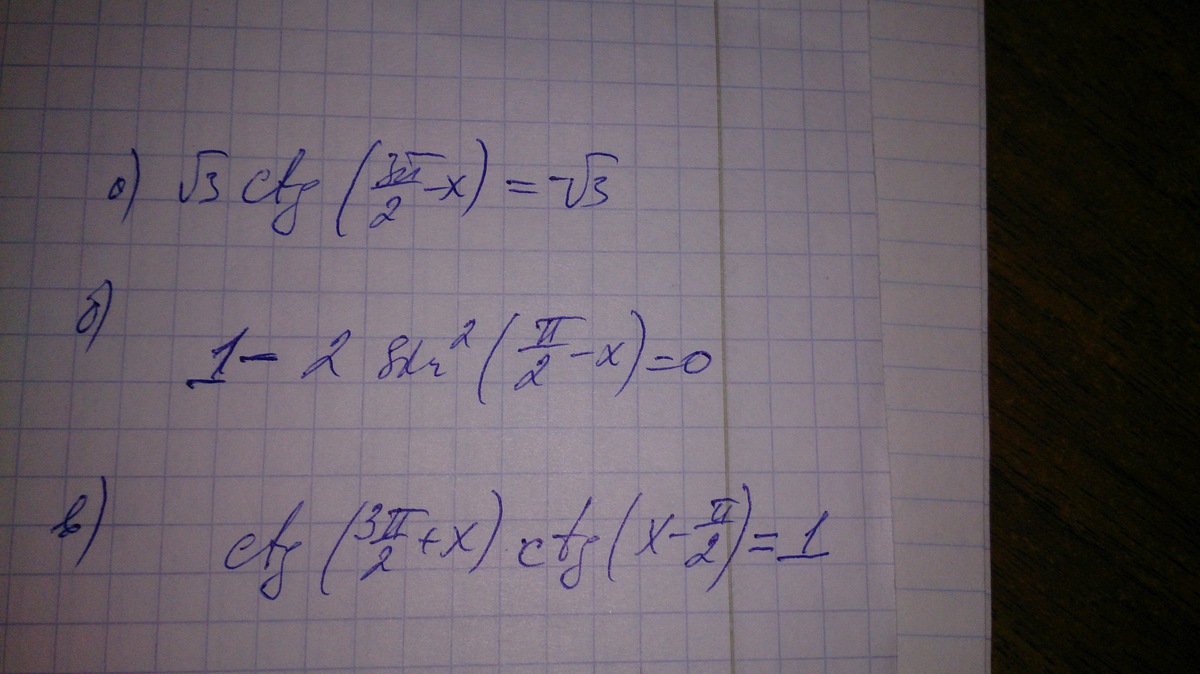 а) √3 ctg (3π/2 - x) = -√3
б)
1 - 2 sin² (π/2 - x) = 0
в) ctg (3π/2 + x) · ctg (x - π/2) = 1